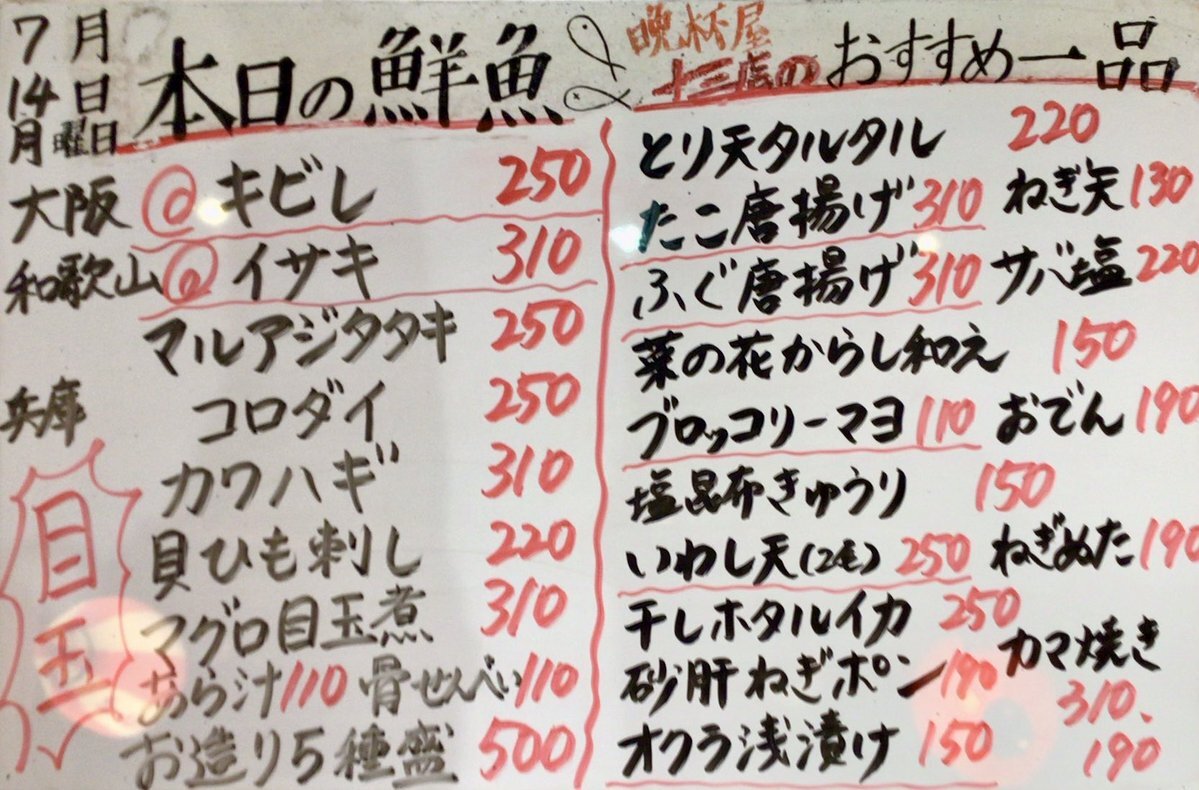 7月
14日
月曜日
本日の鮮魚
大阪 @ キビレ 250
和歌山 @ イサキ 310
マルアジタタキ 250
兵庫 コロダイ 250
カワハギ 310
貝ひも刺し 220
目玉
マグロ目玉煮 310
あら汁110 骨せんべい110
お造り5種盛 500
晩杯屋
十三店のおすすめ一品
とり天タルタル 220
たこ唐揚げ 310 ねぎ矢 130
ふぐ唐揚げ 310 サバ塩 220
菜の花からし和え 150
ブロッコリーマヨ 110 おでん 190
塩昆布きゅうり 150
いわし天(2毛) 250 ねぎぬた 190
干しホタルイカ 250
砂肝ねぎポン 190 カマ焼き
310、
190
オクラ浅漬け 150